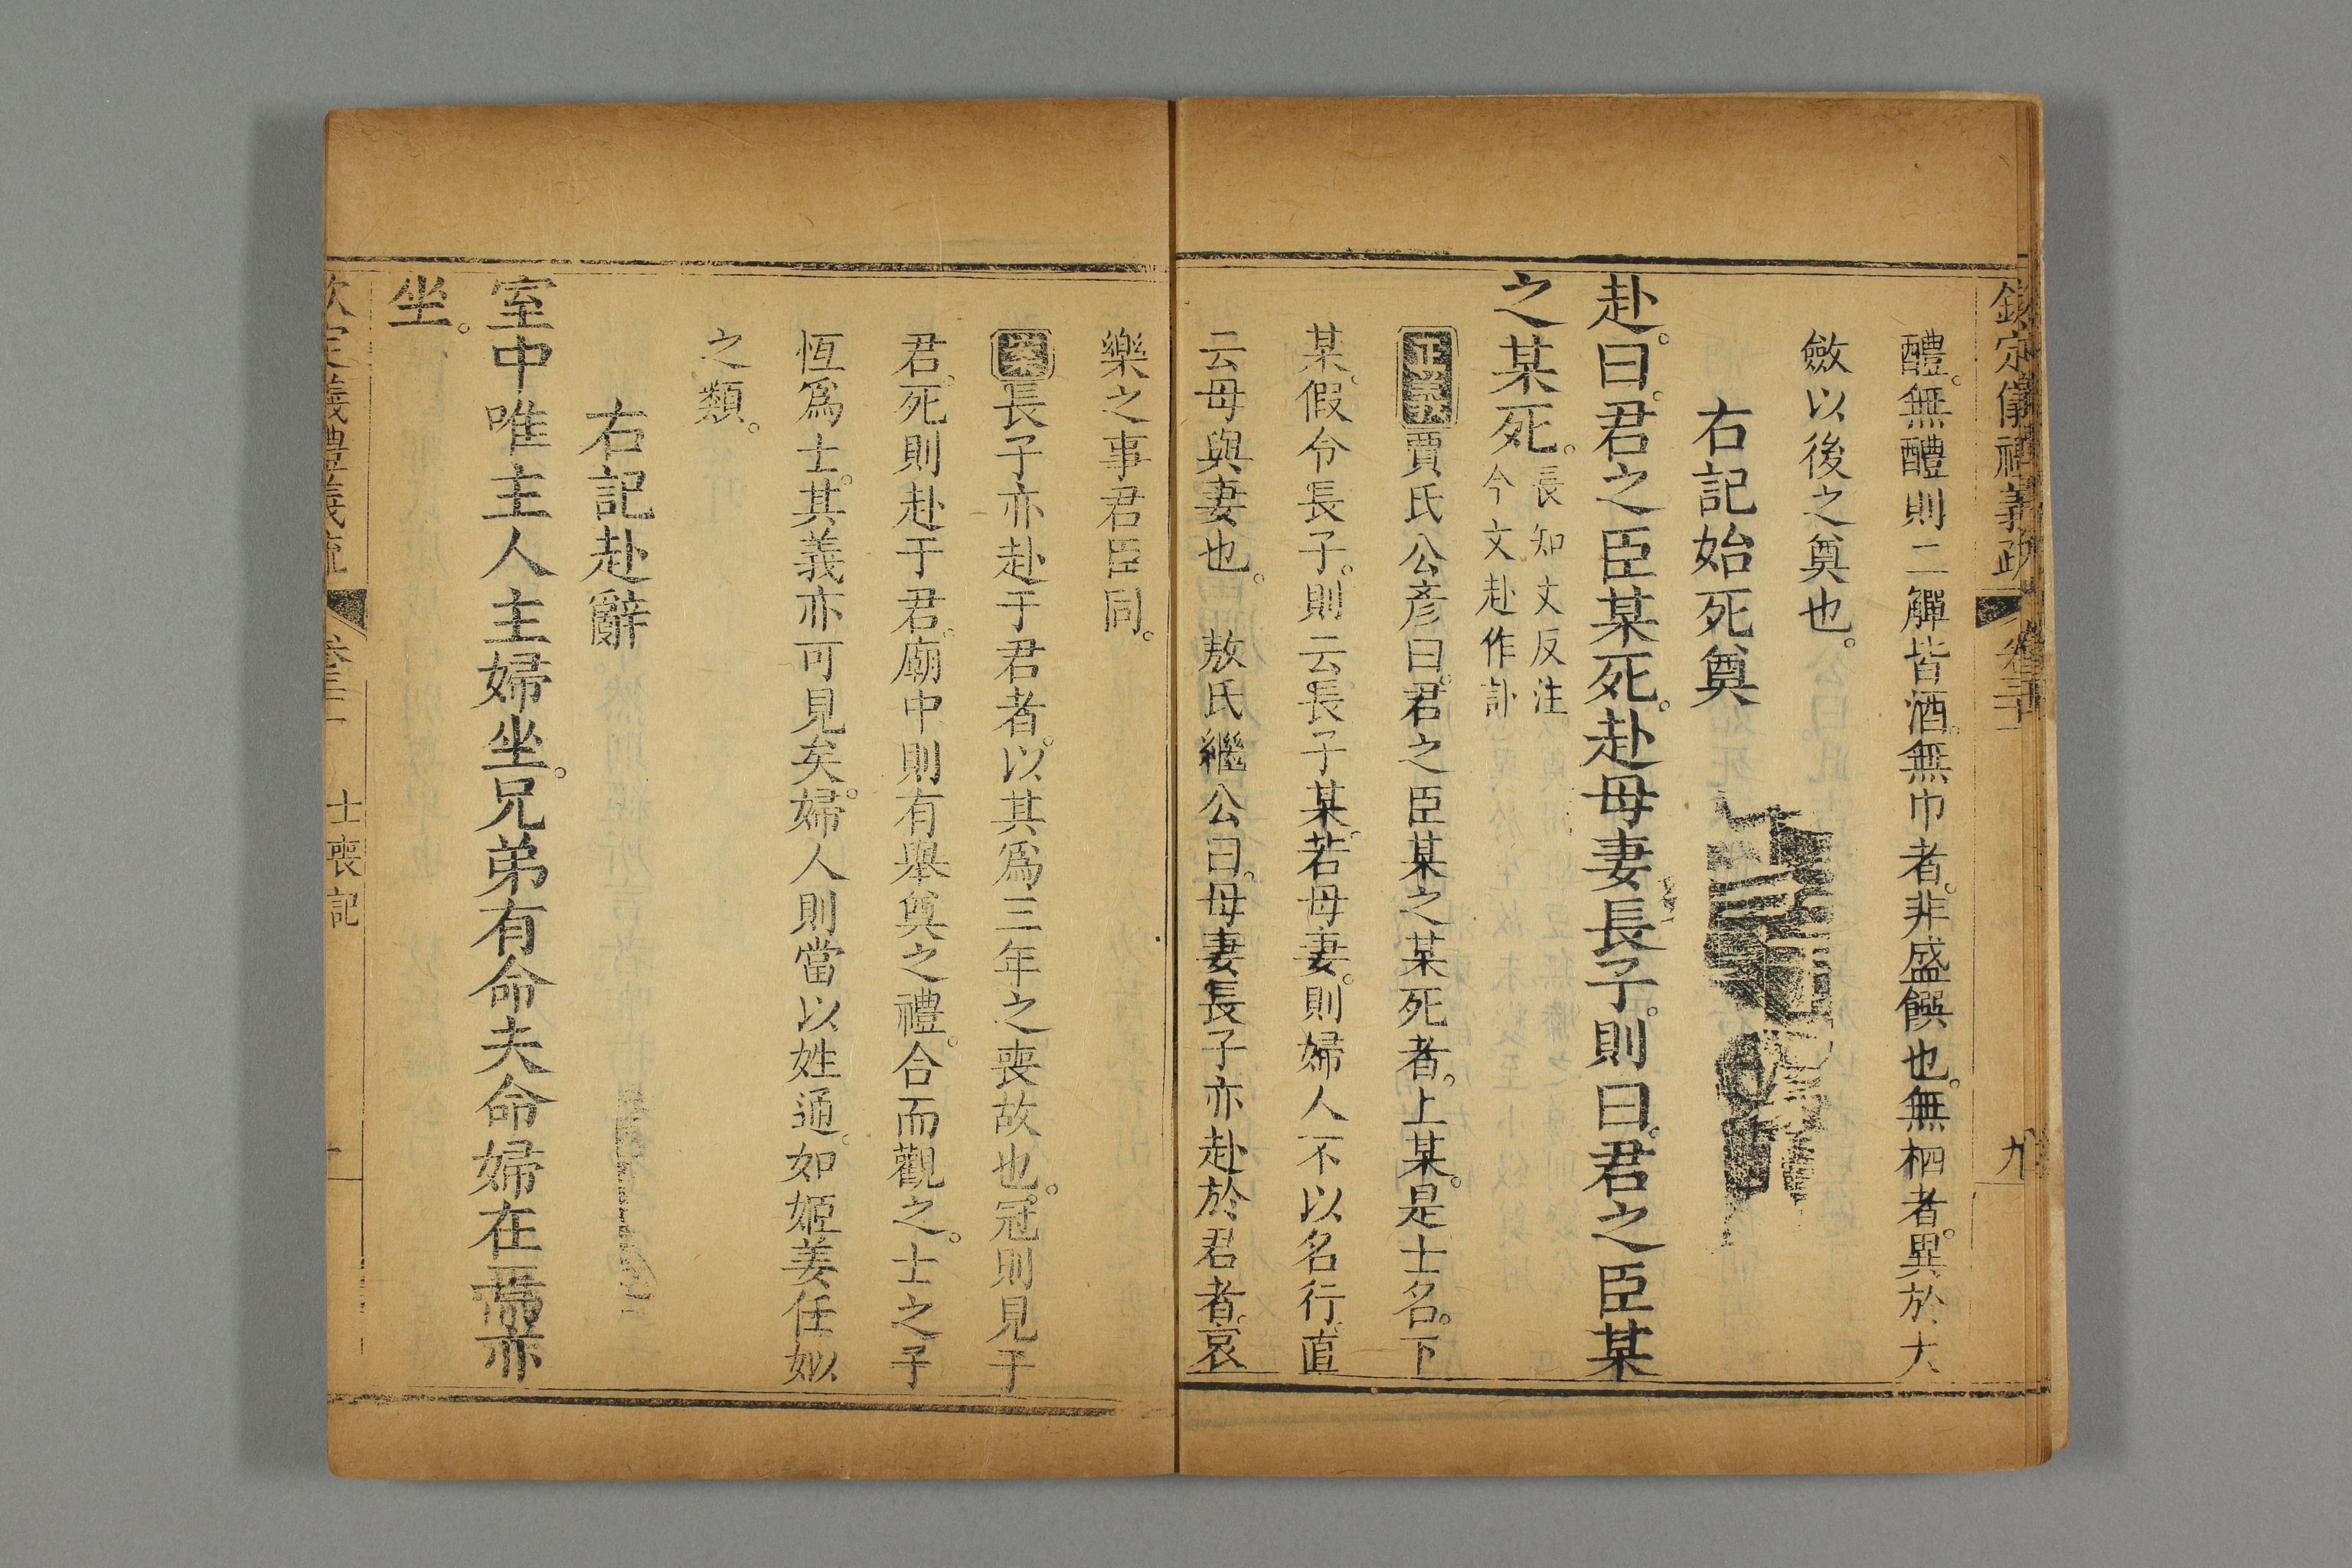 欽定儀禮義疏 卷三十一 九
醴。無醴則二觶皆酒。無巾者。非盛饌也。無柶者。異於大
斂以後之奠也。
右記始死奠
赴。曰。君之臣某死。赴母妻長子。則曰。君之臣某
之某死。長知丈反注今文赴作訃
正義賈氏公彥曰。君之臣某之某死者。上某。是士名。下
某。假令長子。則云長子某。若母妻。則婦人不以名行。直
云母與妻也。 敖氏繼公曰。母妻長子亦赴於君者。哀
樂之事君臣同。
案長子亦赴于君者。以其爲三年之喪故也。冠則見于
君。死則赴于君。廟中則有舉奠之禮。合而觀之。士之子
恆爲士。其義亦可見矣。婦人則當以姓通。如姬姜任姒
之類。
右記赴辭
室中唯主人主婦坐。兄弟有命夫命婦在焉亦
坐。
欽定儀禮義疏 卷三十一 士喪記